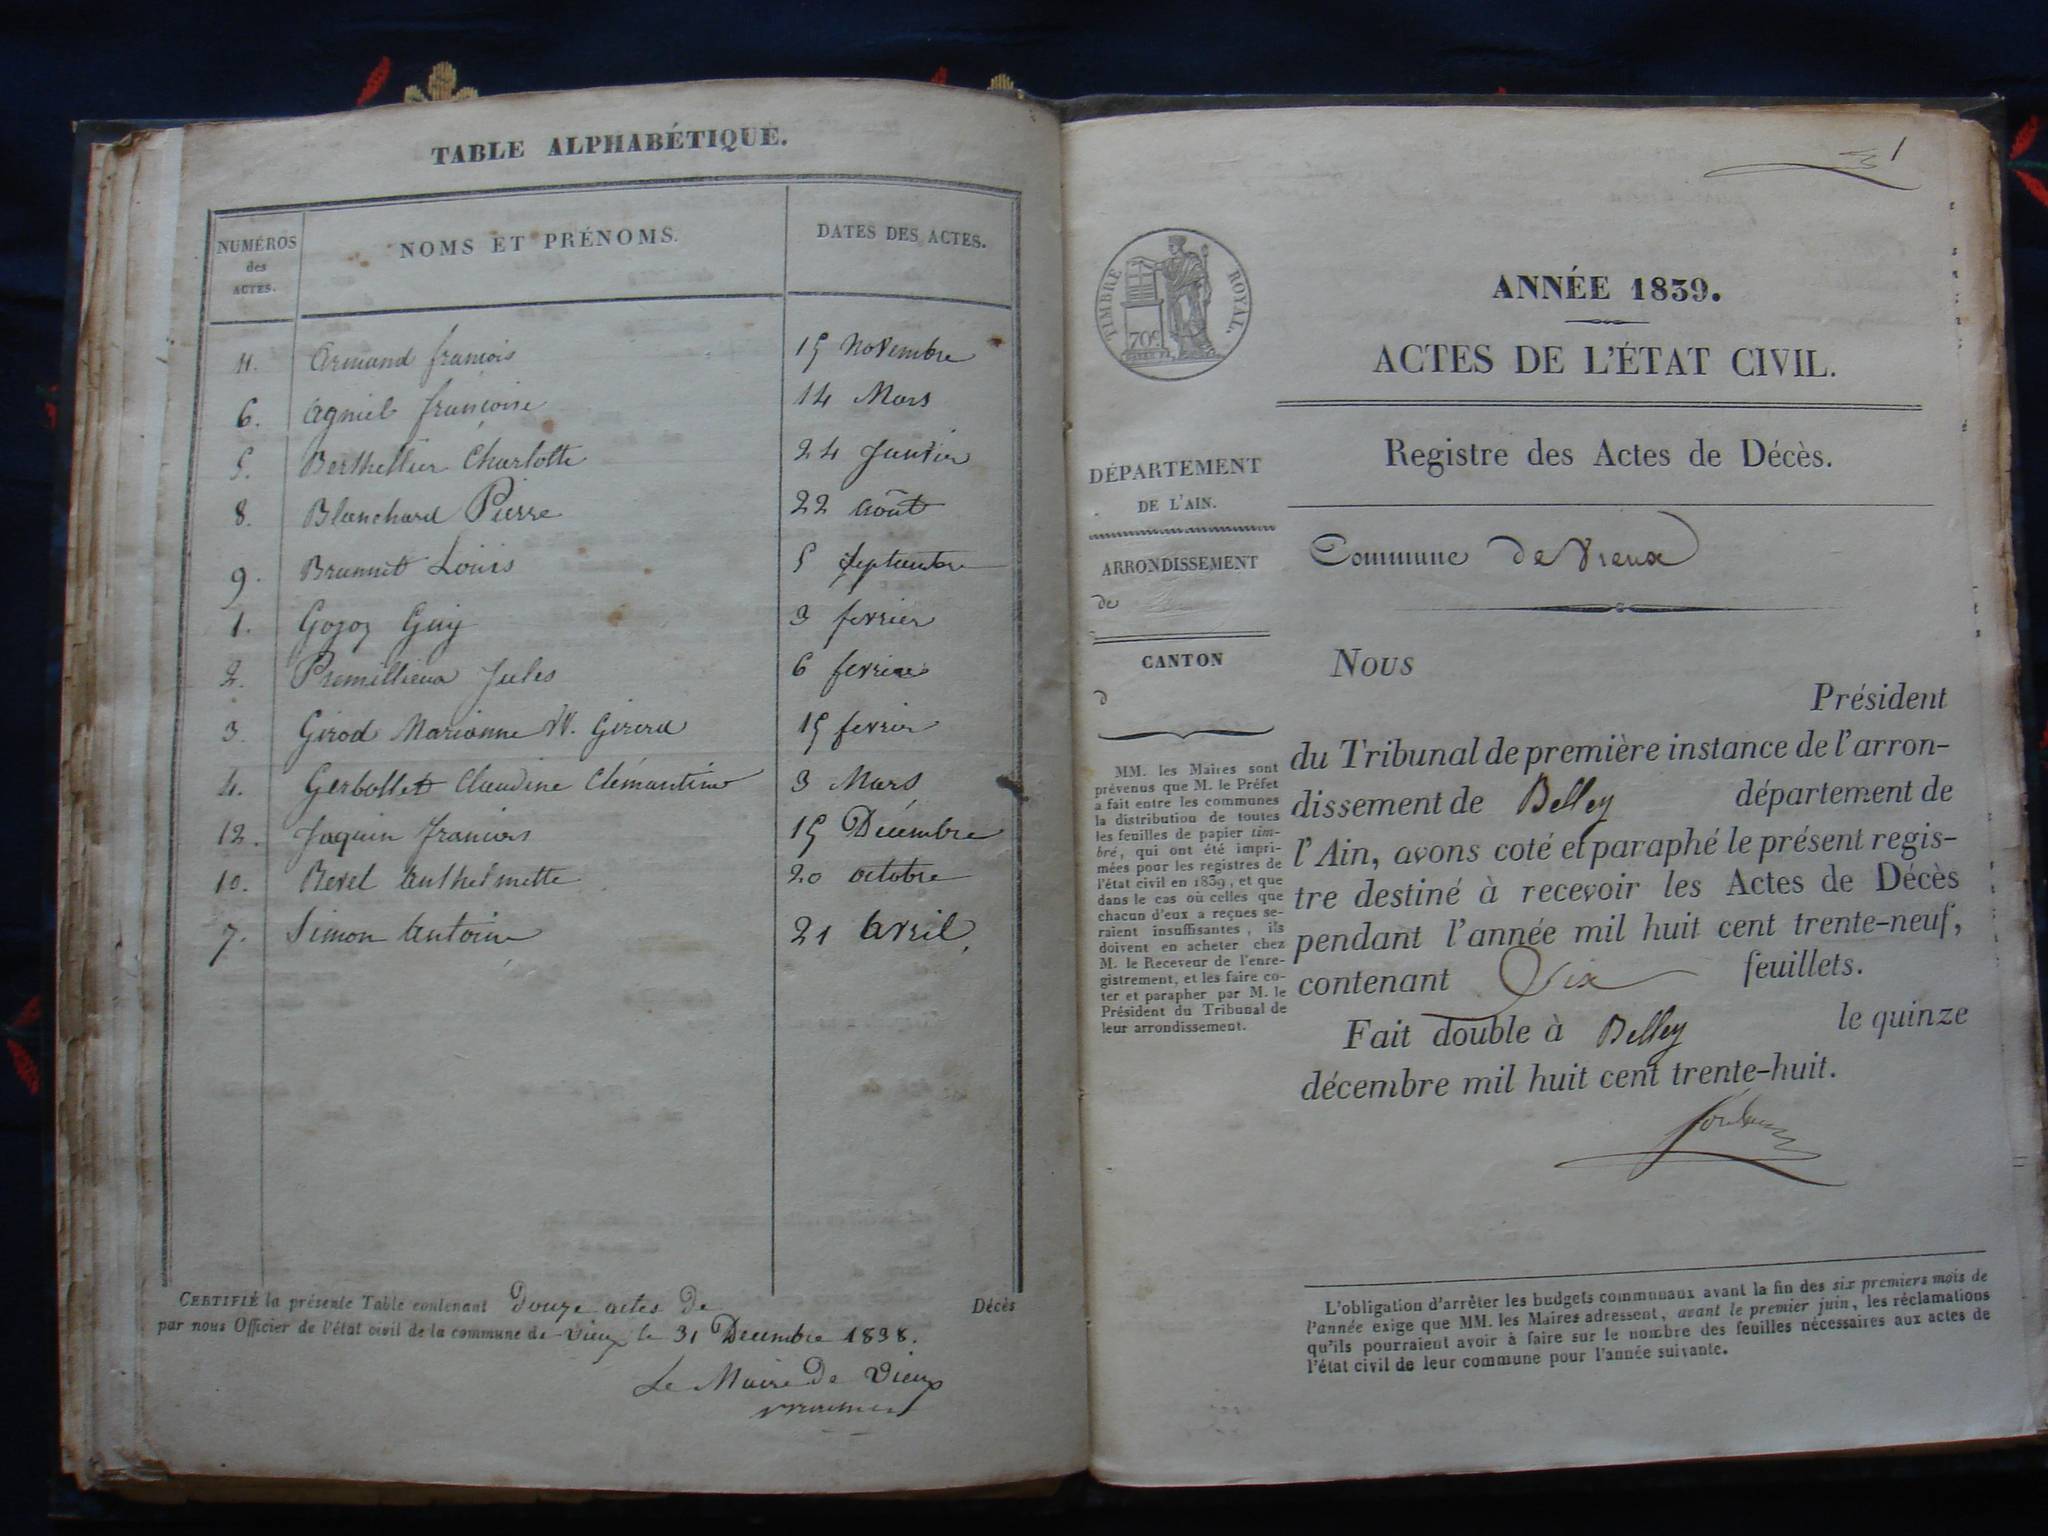 TABLE ALPHABÉTIQUE.
NUMÉROS des ACTES.
NOMS ET PRÉNOMS.
DATES DES ACTES.
11. Armand françois 15 Novembre
6. Agniel françoise 14 Mars
5. Berthellier Charlotte 24 Janvier
8. Blanchard Pierre 22 Août
9. Brunnet Louis 5 Septembre
1. Gojoz Guy 3 fevrier
2. Premillieux Jules 6 fevrier
3. Girod Marianne Vv. Girerd 15 fevrier
4. Gerbollet Claudine Clémantine 3 Mars
12. Jaquin François 15 Décembre
10. Revel Anthelmette 20 octobre
7. Simon Antoine 21 Avril
CERTIFIÉ la présente Table contenant Douze actes de Décès
par nous Officier de l'état civil de la commune de Vieux le 31 Décembre 1838.
Le Maire de Vieux
1
TIMBRE ROYAL.
70c.
ANNÉE 1839.
ACTES DE L'ÉTAT CIVIL.
Registre des Actes de Décès.
DÉPARTEMENT
DE L'AIN.
ARRONDISSEMENT
de
CANTON
d
MM. les Maires sont
prévenus que M. le Préfet
a fait entre les communes
la distribution de toutes
les feuilles de papier tim-
bré, qui ont été impri-
mées pour les registres de
l'état civil en 1839, et que
dans le cas où celles que
chacun d'eux a reçues se-
raient insuffisantes, ils
doivent en acheter chez
M. le Receveur de l'enre-
gistrement, et les faire co-
ter et parapher par M. le
Président du Tribunal de
leur arrondissement.
Commune de Vieux
Nous
Président
du Tribunal de première instance de l'arron-
dissement de Belley département de
l'Ain, avons coté et paraphé le présent regis-
tre destiné à recevoir les Actes de Décès
pendant l'année mil huit cent trente-neuf,
contenant Six feuillets.
Fait double à Belley le quinze
décembre mil huit cent trente-huit.
L'obligation d'arrêter les budgets communaux avant la fin des six premiers mois de
l'année exige que MM. les Maires adressent, avant le premier juin, les réclamations
qu'ils pourraient avoir à faire sur le nombre des feuilles nécessaires aux actes de
l'état civil de leur commune pour l'année suivante.